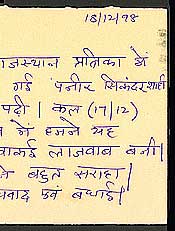 18/12/98
राजस्थान पत्रिका में
गई पनीर सिकंदरशाही
पढ़ी। कल (17/12)
ने हमने यह
वाकई लाजवाब बनी।
ने बहुत सराहा।
एवं बधाई।